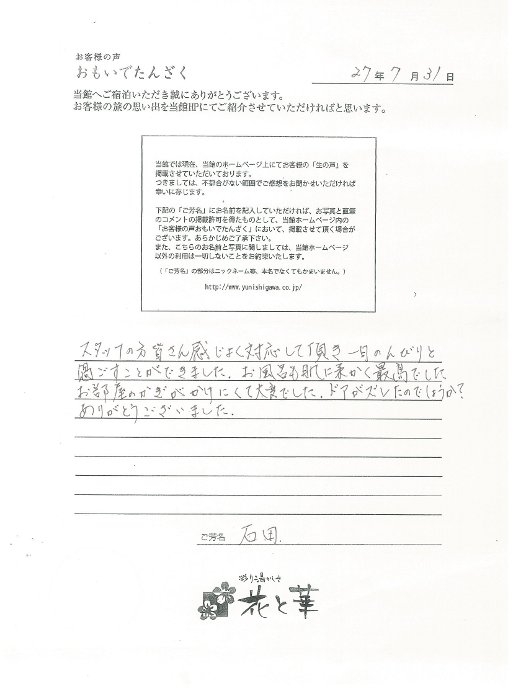 お客様の声
おもいでたんざく
27年7月31日
当館へご宿泊いただき誠にありがとうございます。
お客様の旅の思い出を当館HPにてご紹介させていただければと思います。
当館では現在、当館のホームページ上にてお客様の「生の声」を
掲載させていただいております。
つきましては、不都合がない範囲でご感想をお聞かせいただければ
幸いに存じます。
下記の「ご芳名」にお名前を記入していただければ、お写真と直筆
のコメントの掲載許可を得たものとして、当館ホームページ内の
「お客様の声おもいでたんざく」において、掲載させて頂く場合が
ございます。あらかじめご了承下さい。
また、こちらのお名前と写真に関しましては、当館ホームページ
以外の利用は一切しないことをお約束いたします。
(「ご芳名」の部分はニックネーム等、本名でなくてもかまいません。)
http://www.yunishigawa.co.jp/
スタッフの方皆さん感じよく対応して頂き一日のんびりと
過ごすことができました。お風呂も肌に柔かく最高でした
お部屋のかぎがかけにくて大変でした。ドアがズレたのでしょうか?
ありがとうございました。
ご芳名 石田.
彩り湯かしき
花と華